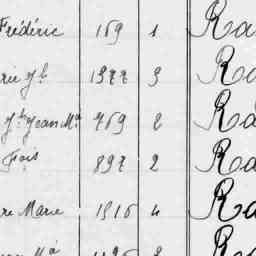 Frédéric 169 1 Ra
rie Jh 1377 3 Ra
Jh Jean Ma 769 2 Ra
Fçois 897 2 Ra
re Marie 1316 4 Ra